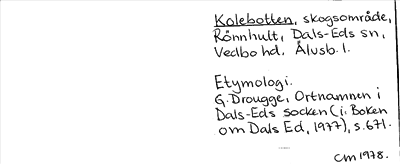 Kolebotten, skogsområde,
Rönnhult, Dals-Eds sn,
Vedbo hd. Älvsb. l.
Etymologi.
G. Drougge, Ortnamnen i
Dals-Eds socken (i: Boken
om Dals Ed, 1977), s. 671.
CM 1978.